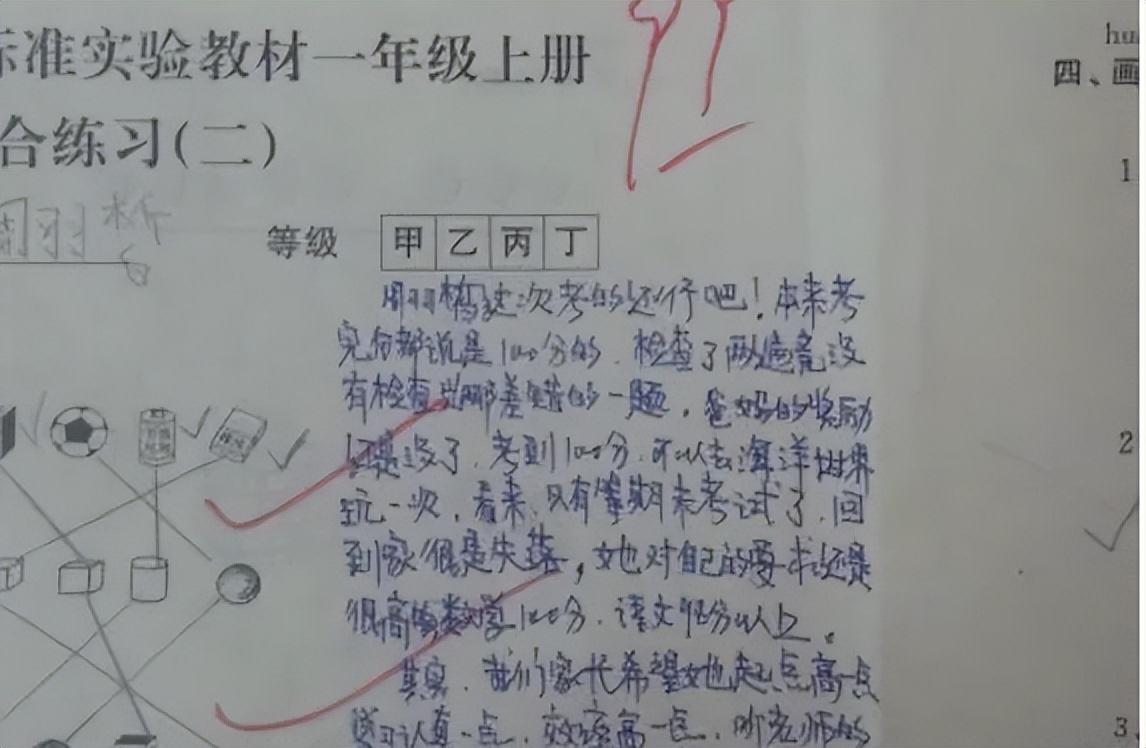 标准实验教材一年级上册
合练习(二)
99
周羽桥
等级 甲 乙 丙 丁
周羽桥这次考的还行吧！本来考
完后都说是100分的．检查了两遍竟没
有检查出那差错的一题．爸妈的奖励
还是没了．考到100分．可以去海洋世界
玩一次．看来．只有等期末考试了．回
到家很是失落，她对自己的要求还是
很高的数学100分．语文95分以上。
其实．我们家长希望她起点高一点
学习认真一点．效率高一点．听老师的
hu
四、画
1
2
3